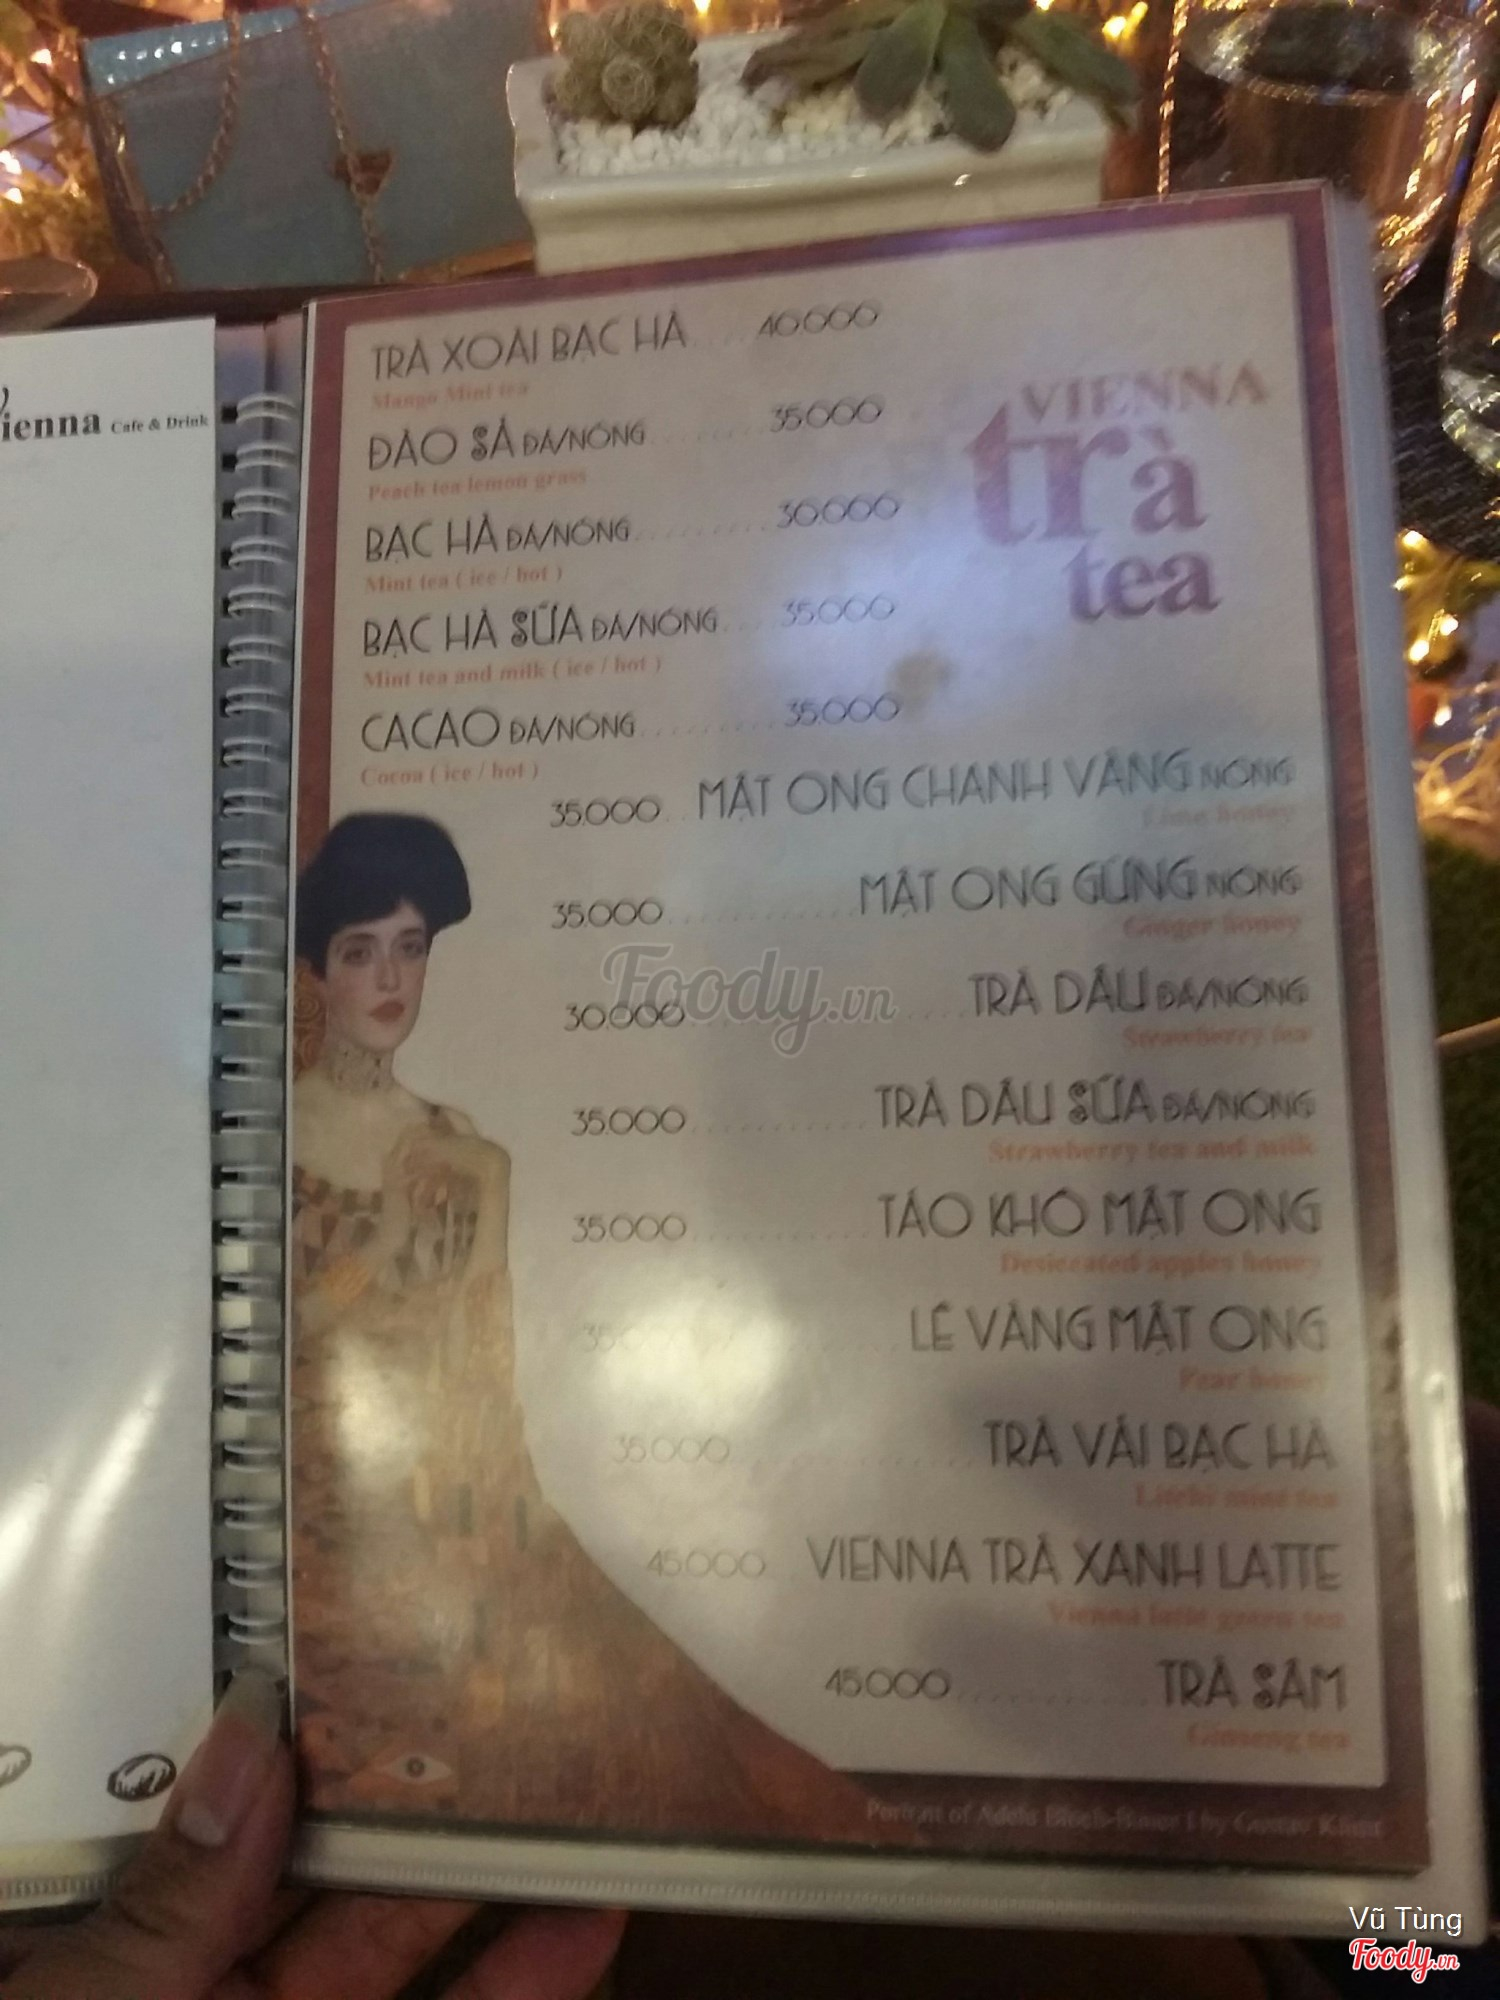 ienna Cafe & Drink
VIENNA
trà
tea
TRÀ XOÀI BẠC HÀ .... 40.000
Mango Mint tea
ĐÀO SẢ ĐÁ/NÓNG ....... 35.000
Peach tea lemon grass
BẠC HÀ ĐÁ/NÓNG .......... 30.000
Mint tea ( ice / hot )
BẠC HÀ SỮA ĐÁ/NÓNG .... 35.000
Mint tea and milk ( ice / hot )
CACAO ĐÁ/NÓNG .......... 35.000
Cocoa ( ice / hot )
35.000 .. MẬT ONG CHANH VÀNG NÓNG
Lime honey
35.000 ............ MẬT ONG GỪNG NÓNG
Ginger honey
30.000 ............ TRÀ DÂU ĐÁ/NÓNG
Strawberry tea
35.000 ............ TRÀ DÂU SỮA ĐÁ/NÓNG
Strawberry tea and milk
35.000 ............ TÁO KHÔ MẬT ONG
Desiccated apples honey
35.000 ............ LÊ VÀNG MẬT ONG
Pear honey
35.000 ............ TRÀ VẢI BẠC HÀ
Litchi mint tea
45.000 .. VIENNA TRÀ XANH LATTE
Vienna latte green tea
45.000 ............ TRÀ SÂM
Ginseng tea
Portrait of Adele Bloch-Bauer I by Gustav Klimt
Foody.vn
Vũ Tùng
Foody.vn